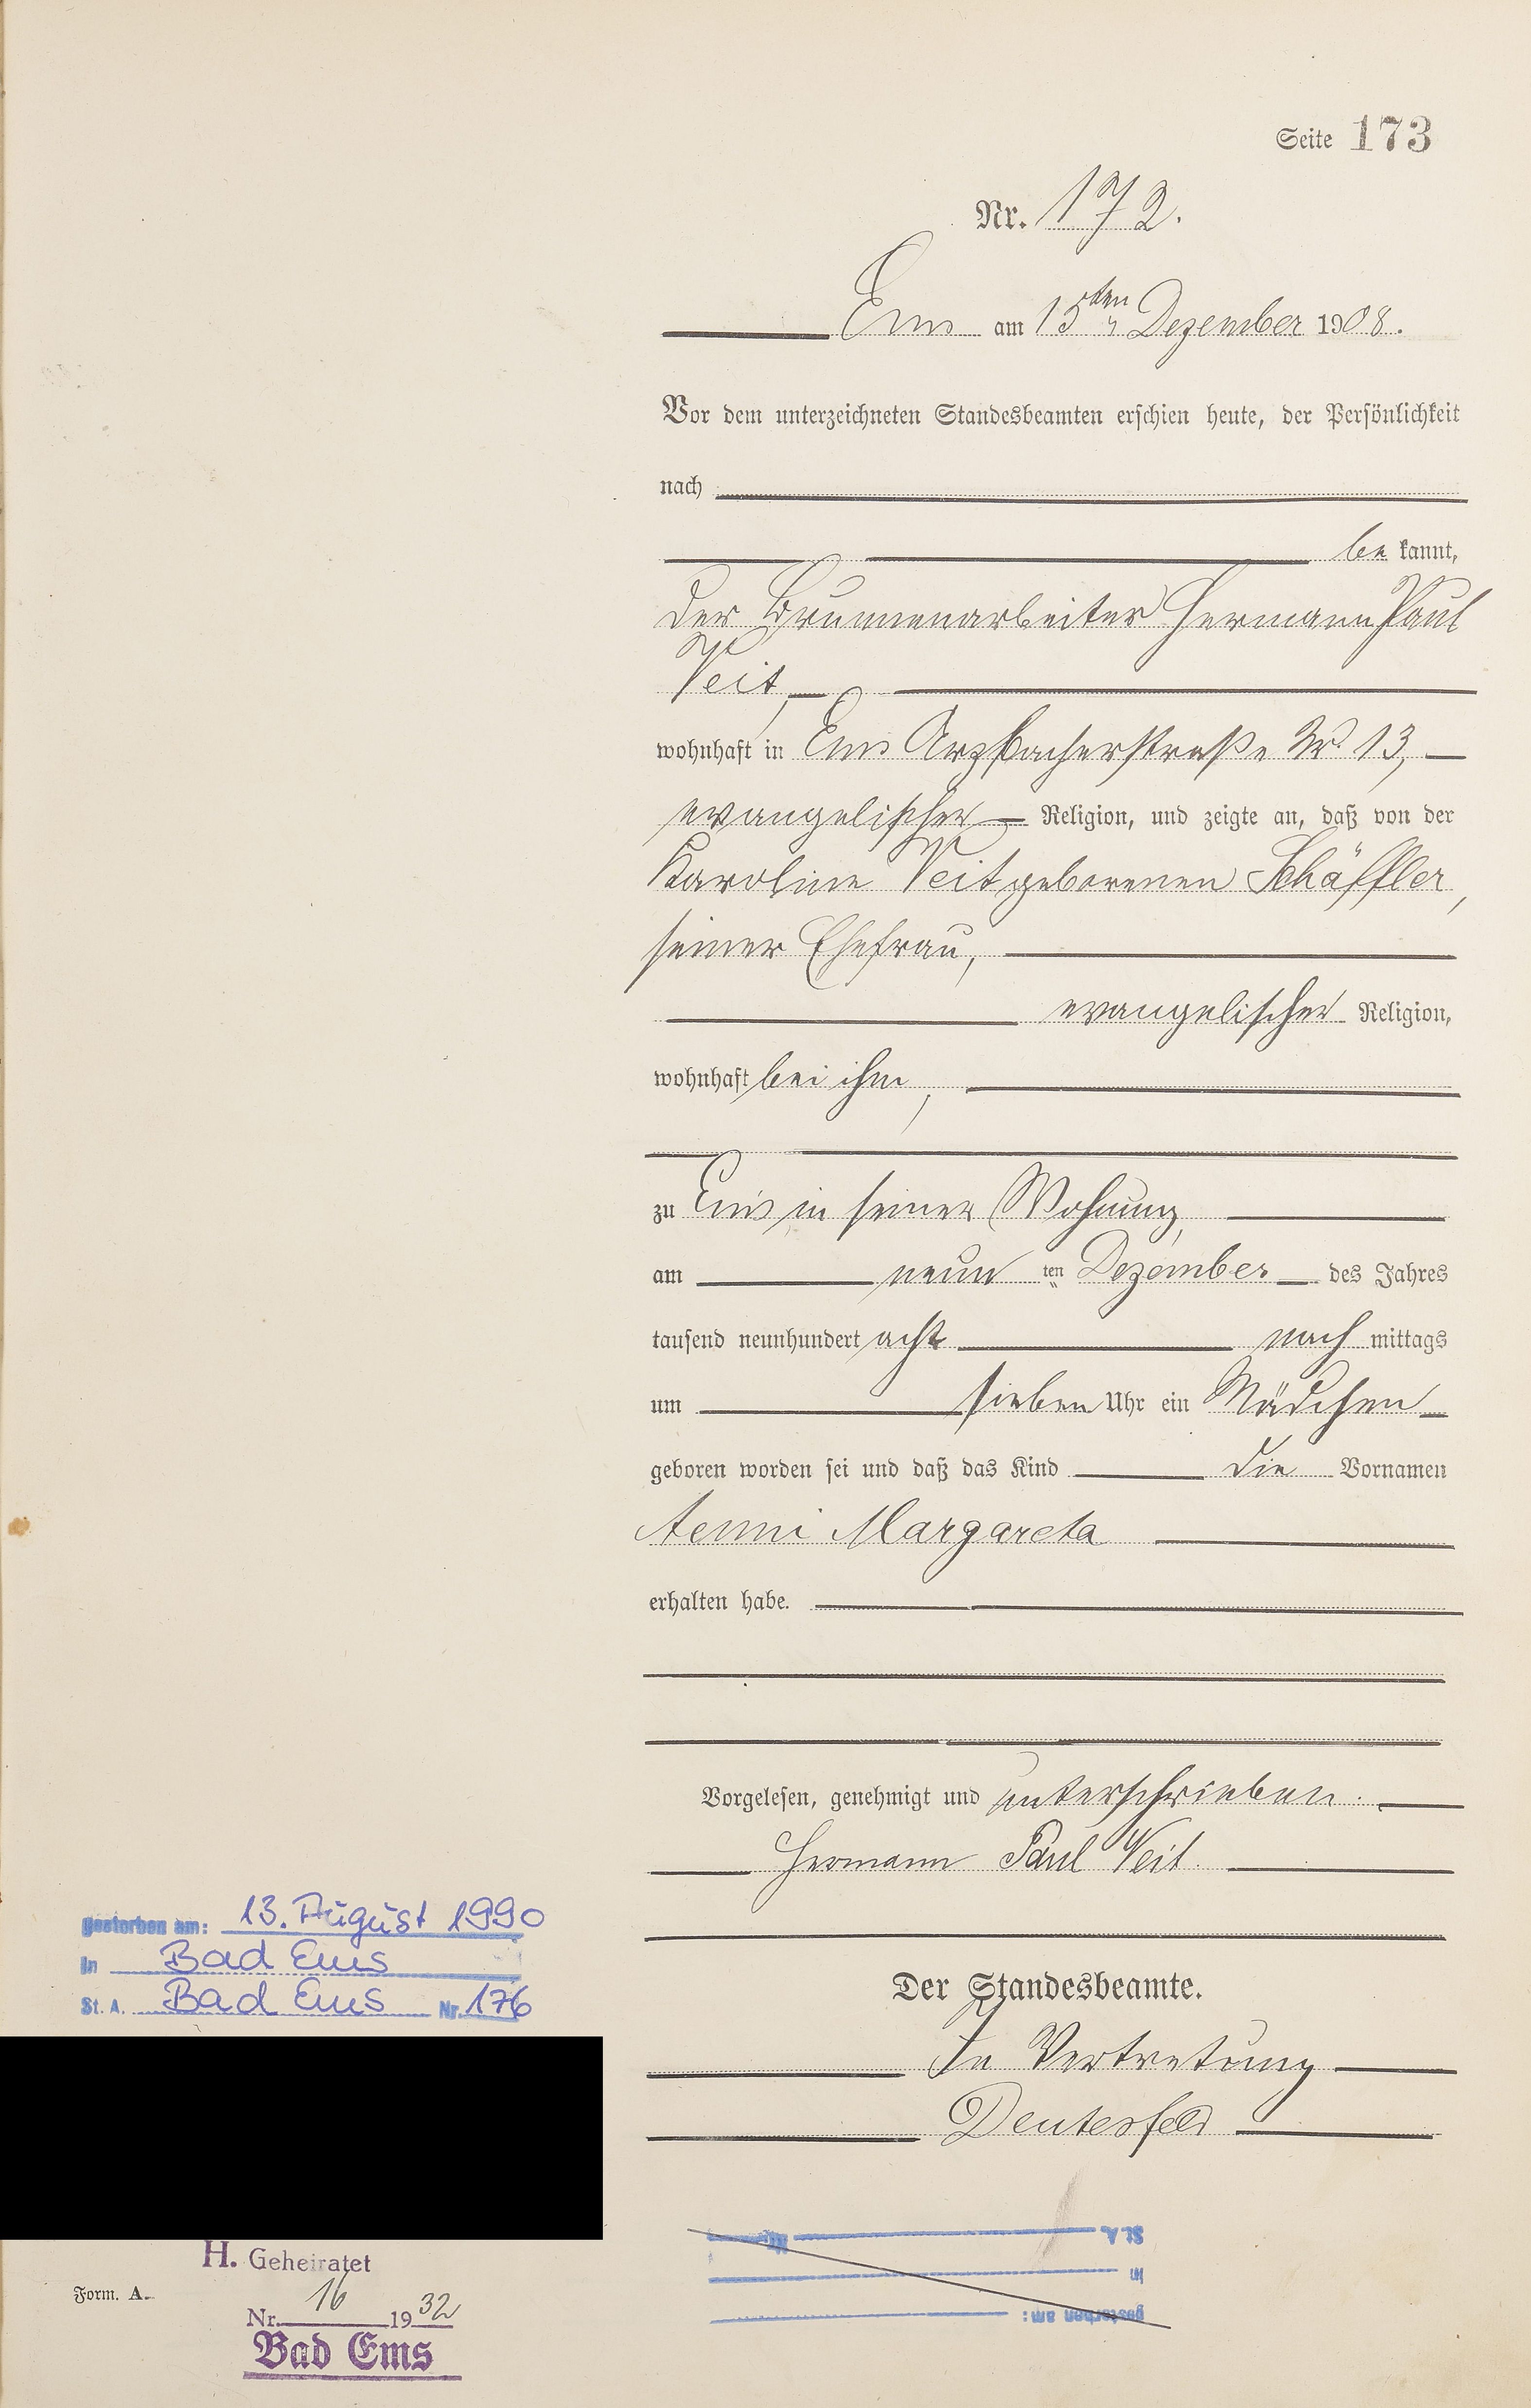 Seite 173
Nr. 172.
Ems am 15ten Dezember 1908.
Vor dem unterzeichneten Standesbeamten erschien heute, der Persönlichkeit
nach
be kannt,
der Brunnenarbeiter Hermann Paul
Veit,
wohnhaft in Ems Arzbacherstraße Nr. 13,
evangelischer Religion, und zeigte an, daß von der
Karoline Veit geborenen Schäffler,
seiner Ehefrau,
evangelischer Religion,
wohnhaft bei ihm,
zu Ems in seiner Wohnung,
am neun ten Dezember des Jahres
tausend neunhundert acht nach mittags
um sieben Uhr ein Mädchen
geboren worden sei und daß das Kind die Vornamen
Aenni Margareta
erhalten habe.
Vorgelesen, genehmigt und unterschrieben.
Hermann Paul Veit.
Der Standesbeamte.
In Vertretung
Deutesfeld
gestorben am: 13. August 1990
in Bad Ems
St. A. Bad Ems Nr. 176
H. Geheiratet
Form. A.
Nr. 16 1932
Bad Ems
St. A. Nr.
in
gestorben am: